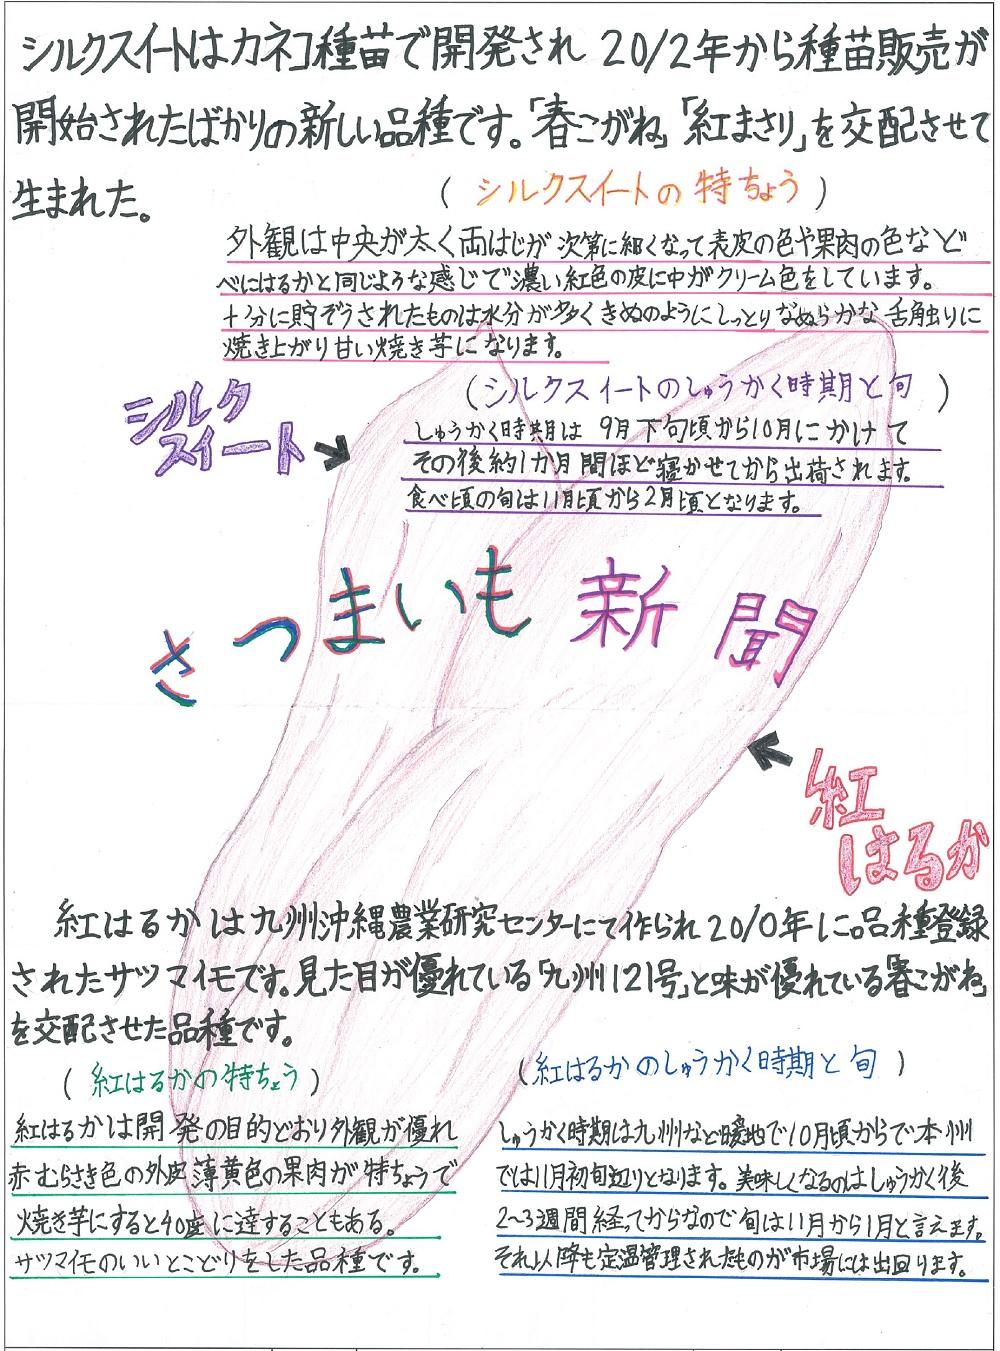 シルクスイートはカネコ種苗で開発され 2012年から種苗販売が
開始されたばかりの新しい品種です。「春こがね」「紅まさり」を交配させて
生まれた。
(シルクスイートの特ちょう)
外観は中央が太く両はじが次第に細くなって表皮の色や果肉の色など
べにはるかと同じような感じで濃い紅色の皮に中がクリーム色をしています。
十分に貯ぞうされたものは水分が多くきぬのようにしっとりなめらかな舌触りに
焼き上がり甘い焼き芋になります。
(シルクスイートのしゅうかく時期と旬)
しゅうかく時期は 9月下旬頃から10月にかけて
その後約1カ月間ほど寝かせてから出荷されます。
食べ頃の旬は11月頃から2月頃となります。
シルク
スイート
さつまいも新聞
紅
はるか
紅はるかは九州沖縄農業研究センターにて作られ2010年に品種登録
されたサツマイモです。見た目が優れている「九州121号」と味が優れている「春こがね」
を交配させた品種です。
(紅はるかの特ちょう)
紅はるかは開発の目的どおり外観が優れ
赤むらさき色の外皮 薄黄色の果肉が特ちょうで
焼き芋にすると40度に達することもある。
サツマイモのいいとこどりをした品種です。
(紅はるかのしゅうかく時期と旬)
しゅうかく時期は九州など暖地で10月頃からで本州
では11月初旬辺りとなります。美味しくなるのはしゅうかく後
2〜3週間経ってからなので旬は11月から1月と言えます。
それ以降も定温管理されたものが市場には出回ります。